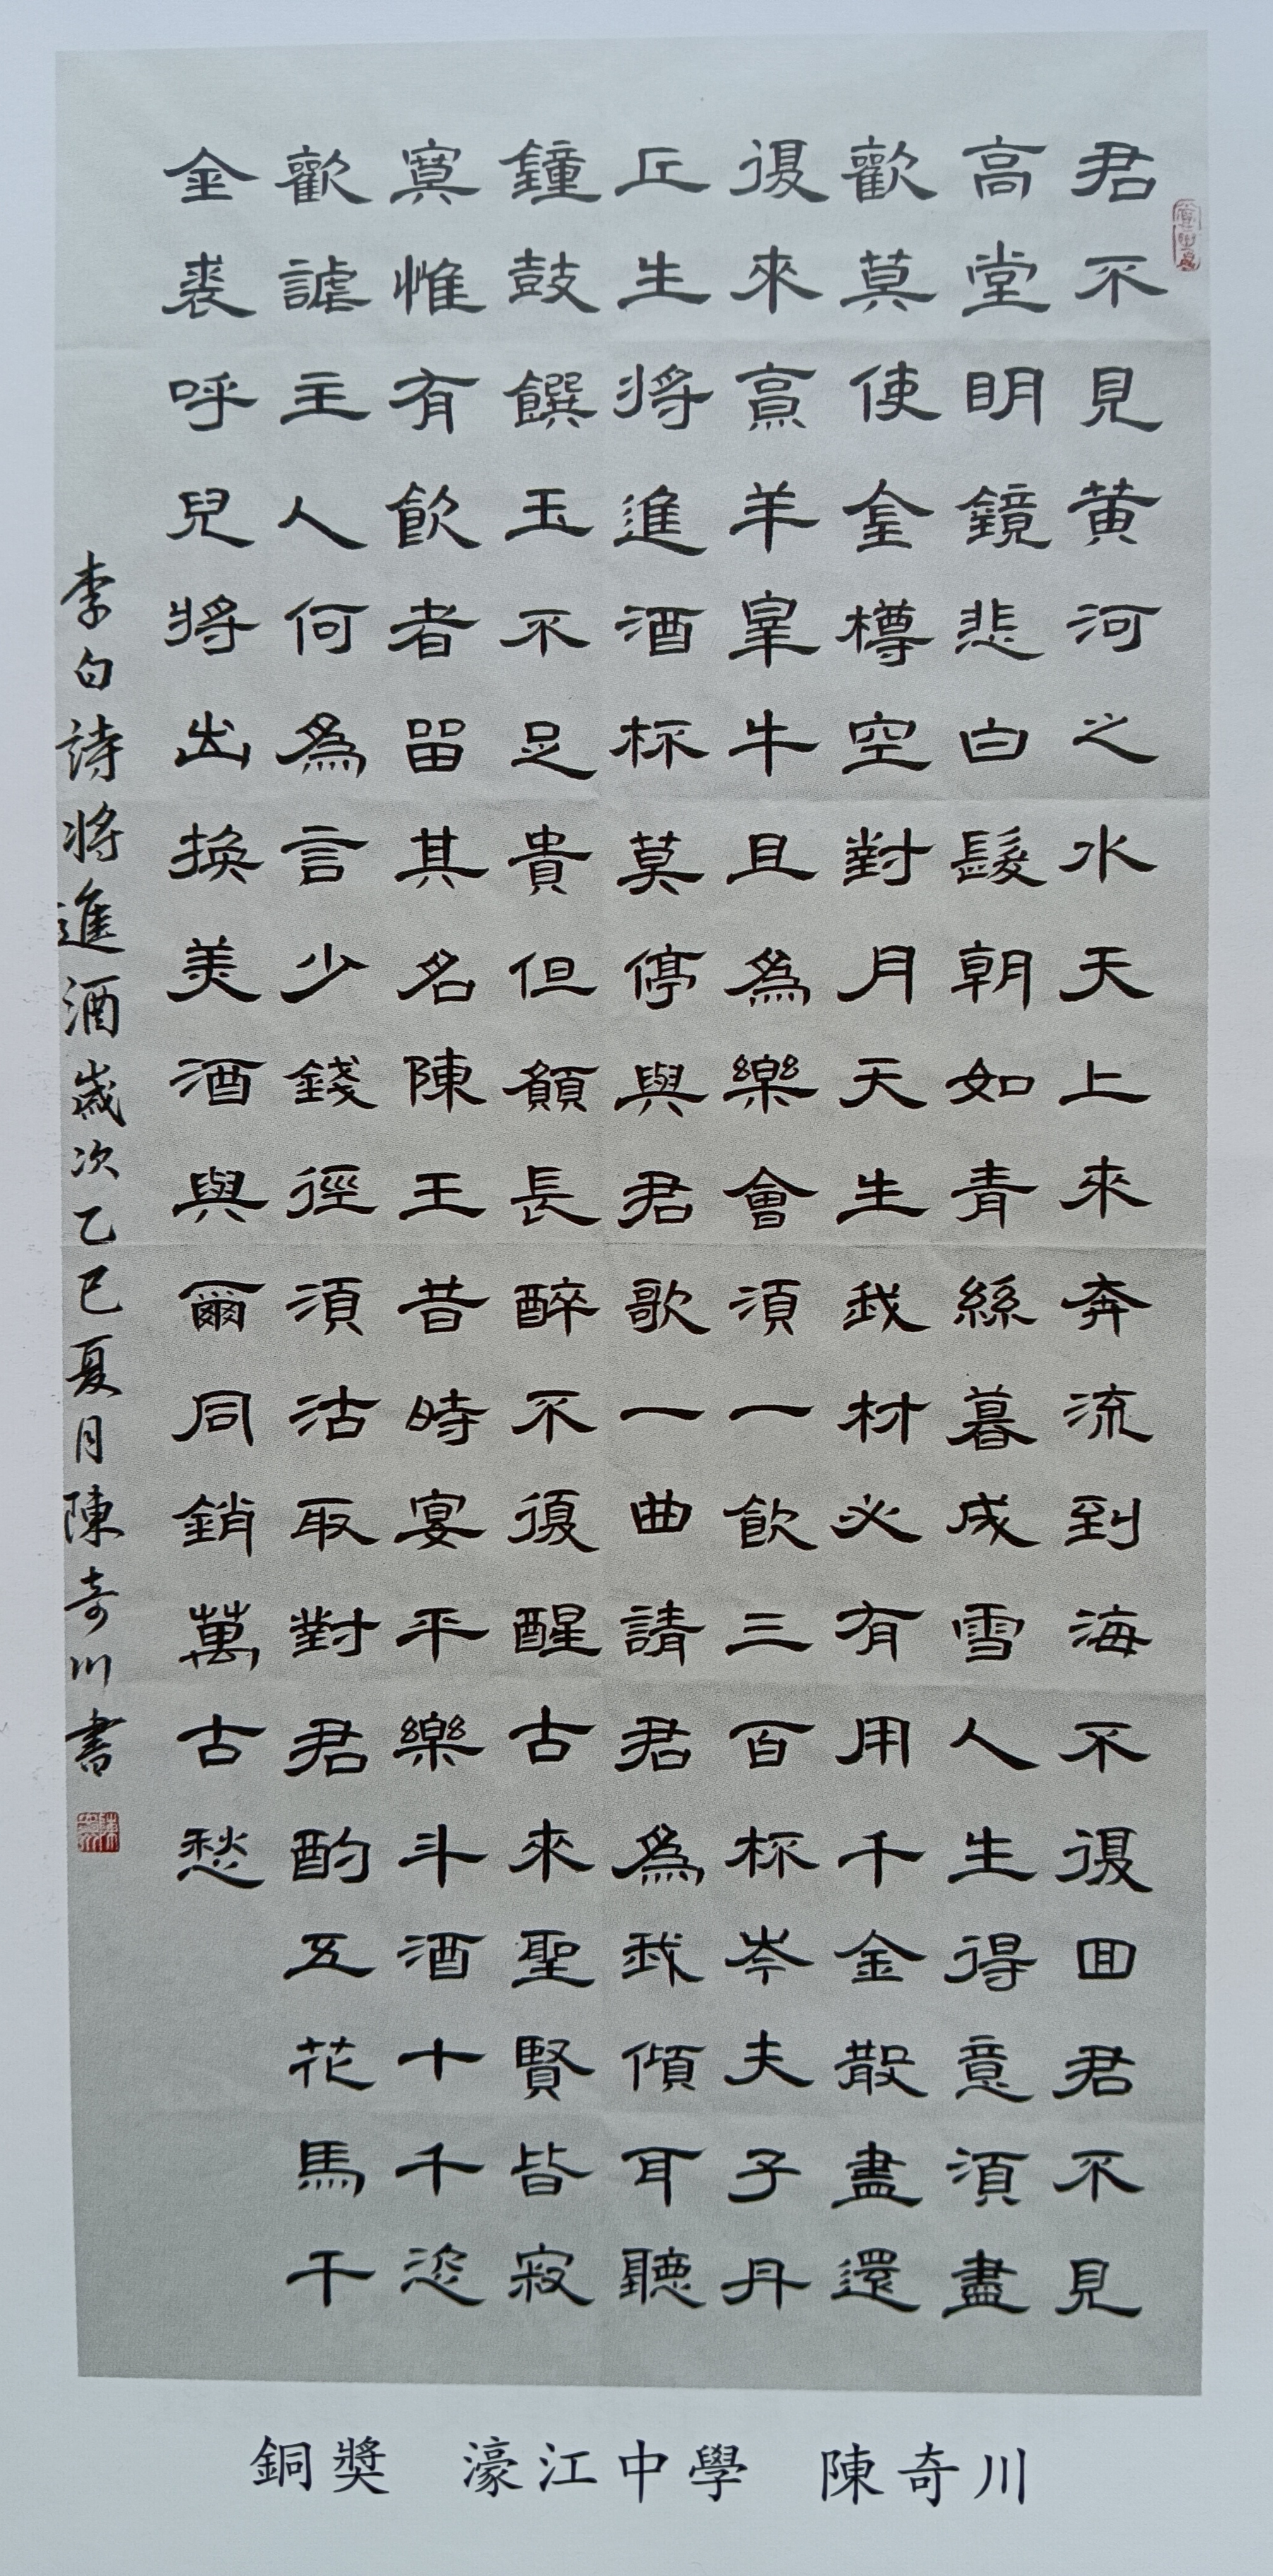 君不見黄河之水天上來奔流到海不復回君不見
高堂明鏡悲白髮朝如青絲暮成雪人生得意須盡
歡莫使金樽空對月天生我材必有用千金散盡還
復來烹羊宰牛且為樂會須一飲三百杯岑夫子丹
丘生將進酒杯莫停與君歌一曲請君為我傾耳聽
鐘鼓饌玉不足貴但願長醉不復醒古來聖賢皆寂
寞惟有飲者留其名陳王昔時宴平樂斗酒十千恣
歡謔主人何為言少錢徑須沽取對君酌五花馬千
金裘呼兒將出換美酒與爾同銷萬古愁
李白詩將進酒歲次乙巳夏月陳奇川書
銅獎 濠江中學 陳奇川